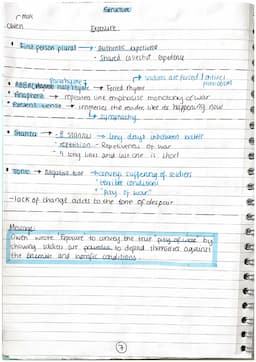 Structure
Owen
Exposure
• First person plural → Authentic experience
· Shared collective experience
Pararhyme
→ soldiers are forced / antiwar
• half rhyme → Forced rhyme
• Anaphora → repeated line emphasise monotony of war
• Present tense → immerses the reader like its happening now
↳ sympathy
• Stanza → · 8 stanzas → long days inbetween battle
· repetition - Repetitiveness of war
· 4 long lines and last one is short
• Tone → Negative tone → conveys suffering of soldiers
· terrible conditions
· "Pity of war"
- lack of change adds to the tone of despair
Message:
Owen wrote 'Exposure' to convey the true 'pity of war' by
showing soldiers are powerless to defend themselves against
the and horrific conditions.
7